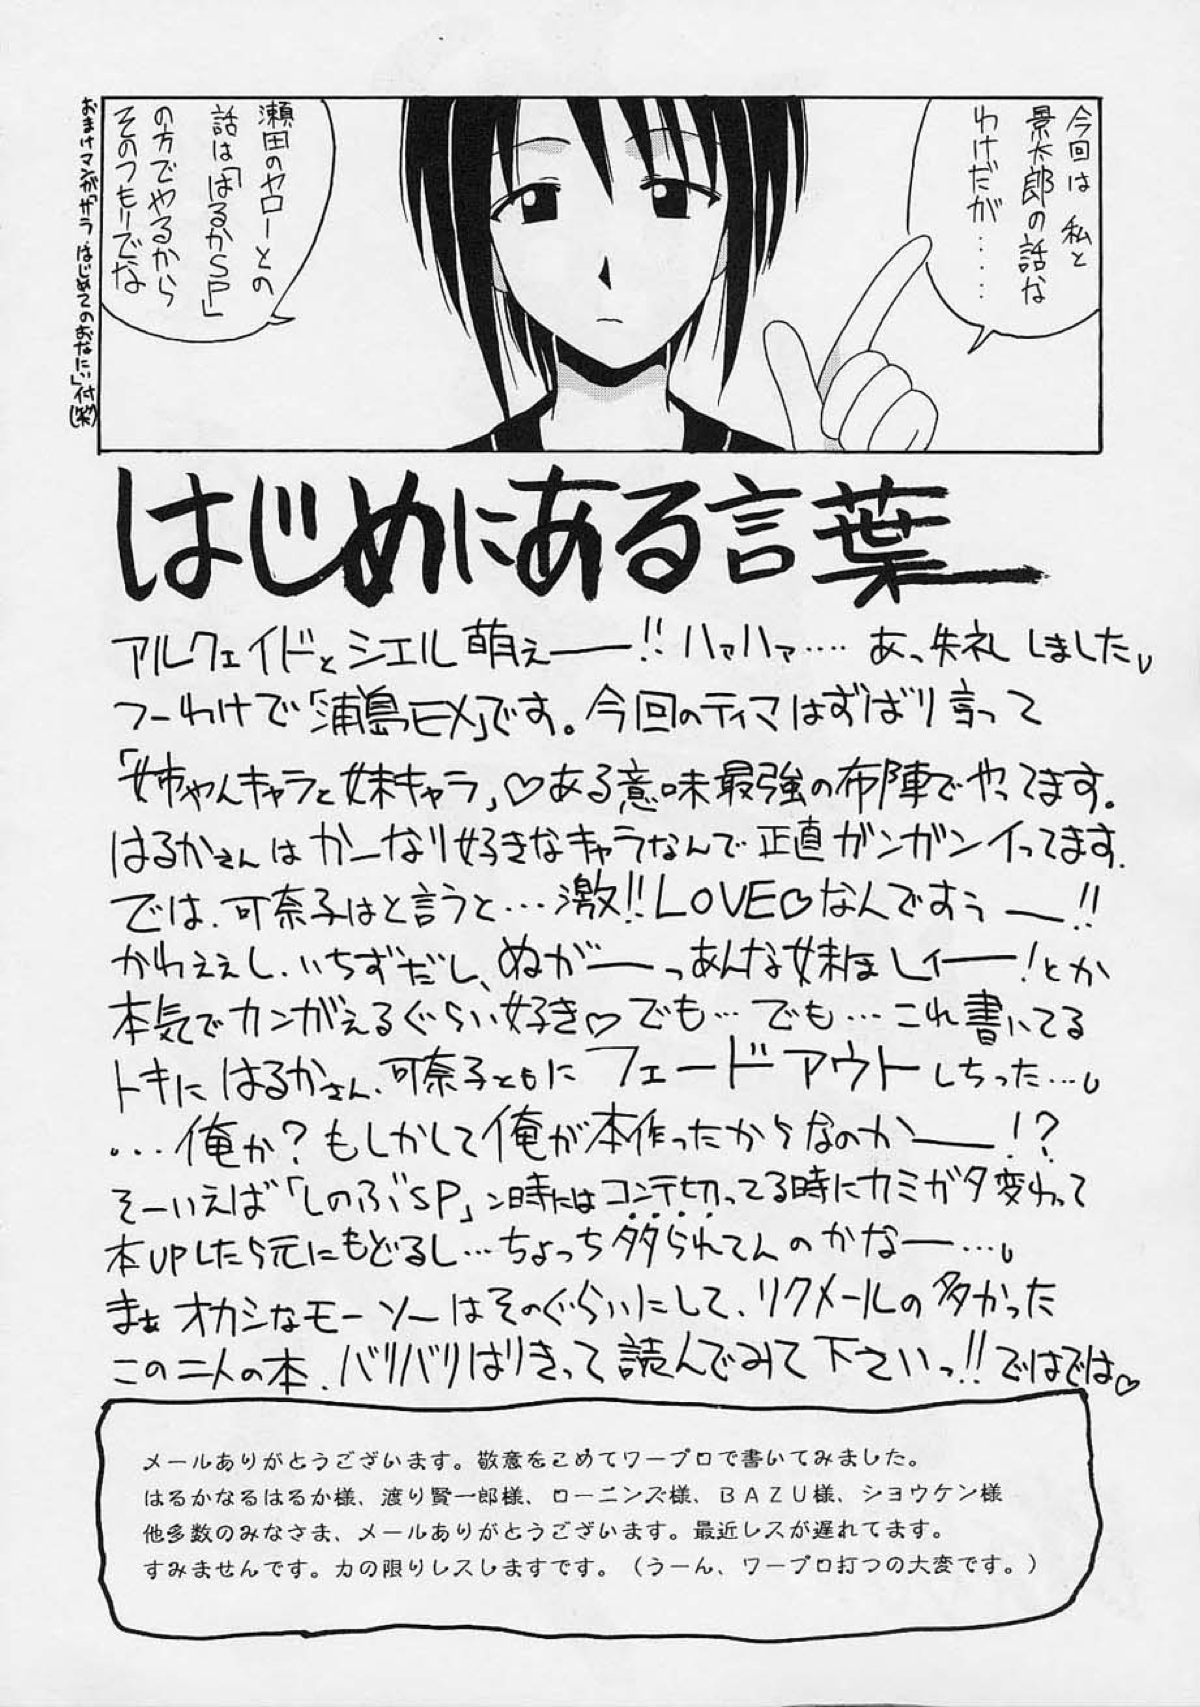 今回は 私と
景太郎の話な
わけだが‥‥
瀬田のヤローとの
話は「はるかSP」
の方でやるから
そのつもりでな
おまけマンが「サラ はじめてのおなにぃ」付(笑)
はじめにある言葉
アルクェイドとシエル萌えー!! ハァハァ‥‥ あっ失礼しました
つーわけで「浦島EX」です。今回のティマはずばり言って
「姉ちゃんキャラと妹キャラ」♡ある意味最強の布陣でやってます。
はるかさんはかーなり好きなキャラなんで正直ガンガンイってます.
では、可奈子はと言うと…激!!LOVE♡なんですぅー!!
かわええし、いちずだし、ぬがーっあんな妹ほしィー!とか
本気でカンがえるぐらい好き♡でも…でも…これ書いてる
トキにはるかさん、可奈子ともにフェードアウトしちった…
…俺か?もしかして俺が本作ったからなのかー!?
そーいえば「しのぶSP」ン時にはコンテ切ってる時にカミガタ変わって
本UPしたら元にもどるし…ちょっち祟られてんのかなー…
まぁオカシなモーソーはそのぐらいにして、リクメールの多かった
この二人の本、バリバリはりきって読んでみて下さいっ!!ではでは♡
メールありがとうございます。敬意をこめてワープロで書いてみました。
はるかなるはるか様、渡り賢一郎様、ローニンズ様、BAZU様、ショウケン様
他多数のみなさま、メールありがとうございます。最近レスが遅れてます。
すみませんです。力の限りレスしますです。(うーん、ワープロ打つの大変です。)